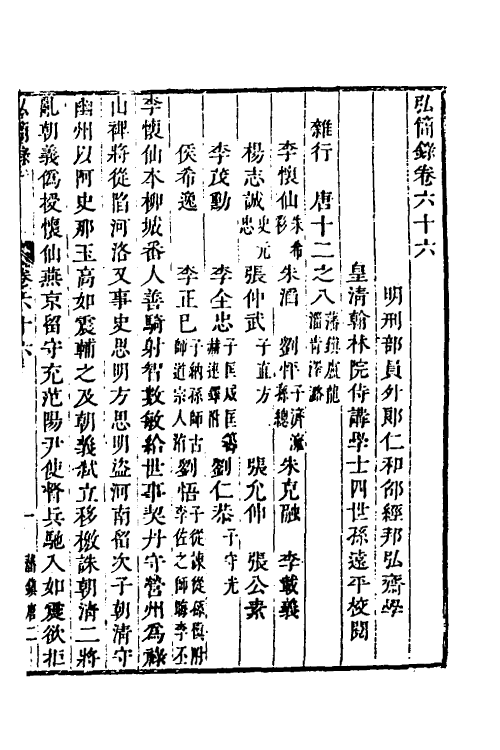 弘簡錄卷六十六
明刑部員外郎仁和邵經邦弘齋學
皇清翰林院侍講學士四世孫遠平校閱
雜行 唐十二之八 藩鎮盧龍 淄青澤潞
李懷仙 朱希彩 朱滔 劉怦 子濟 孫總 朱克融 李載義
楊志誠 史元忠 張仲武 子直方 張允伸 張公素
李茂勳 李全忠 子匡威 匡籌 劉仁恭 子守光
侯希逸 李正巳 子納 孫師古 師道 宗人洧 劉悟 子從諫 從孫稹附 李佐之 師晦 李丕
李懷仙本柳城番人善騎射智數敏給世事契丹守營州爲祿
山裨將從陷河洛又事史思明方思明盜河南留次子朝清守
幽州以阿史那玉高如震輔之及朝義弒立移檄誅朝清二將
亂朝義僞授懷仙燕京留守充范陽尹使督兵馳入如震欲拒
弘簡錄 卷六十六 一 藩鎮唐二